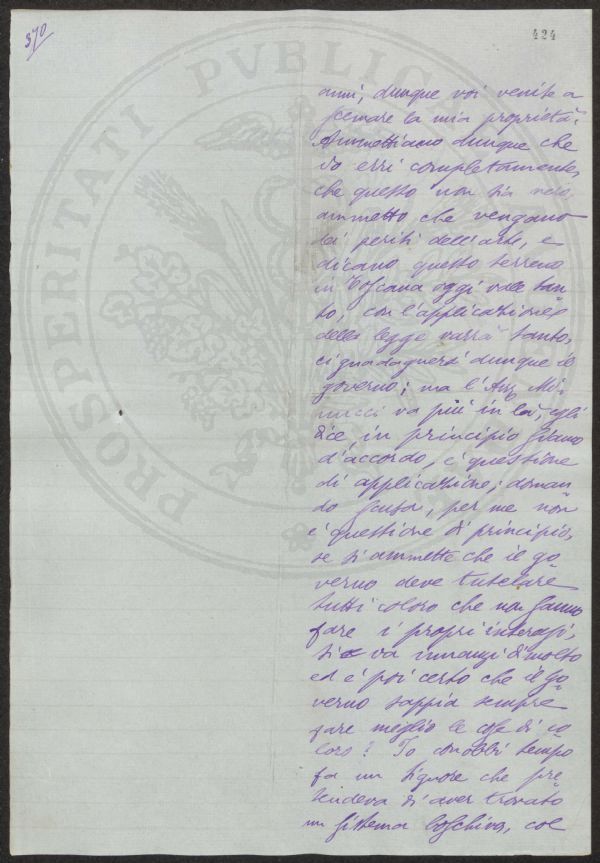 370
424
PROSPERITATI PVBLICAE
anni; dunque voi venite a
scemare la mia proprietà.
Ammettiamo dunque che
io erri completamente,
che questo non sia vero,
ammetto che vengano
dei periti dell'arte, e
dicano questo terreno
in Toscana oggi vale tan
to, con l'applicazione
della legge varrà tanto,
ci guadagnerà dunque il
governo; ma l'Avv. Mi
nucci va più in là, egli
dice, in principio siamo
d'accordo, è questione
di applicazione; doman
do scusa, per me non
è questione di principio,
se si ammette che il go
verno deve tutelare
tutti coloro che non sanno
fare i propri interessi,
si va innanzi di molto
ed è poi certo che il go
verno sappia sempre
fare meglio le cose di co
loro? Io conobbi tempo
fa un signore che pre
tendeva di aver trovato
un sistema boschivo, col